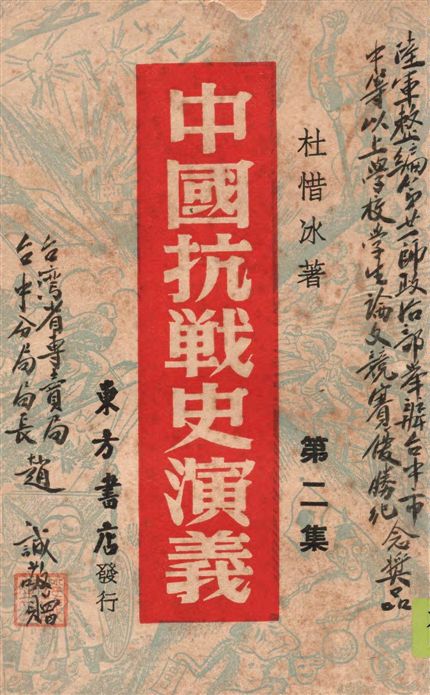 陸軍整編第廿一師政治部舉辦台中市
中等以上學校學生論文競賽優勝紀念獎品
杜惜冰著
第二集
中國抗战史演義
東方書店發行
台灣省專賣局
台中分局局長 趙誠敬贈